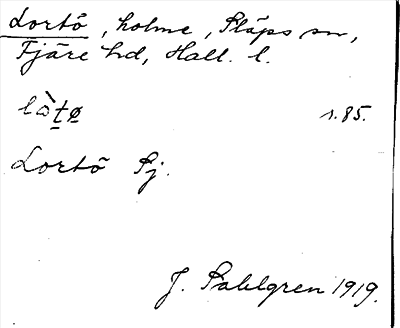 Lortö, holme, Släps sn,
Fjäre hd, Hall. l.
lòtø 1.85.
Lortö Sj.
J. Sahlgren 1919.